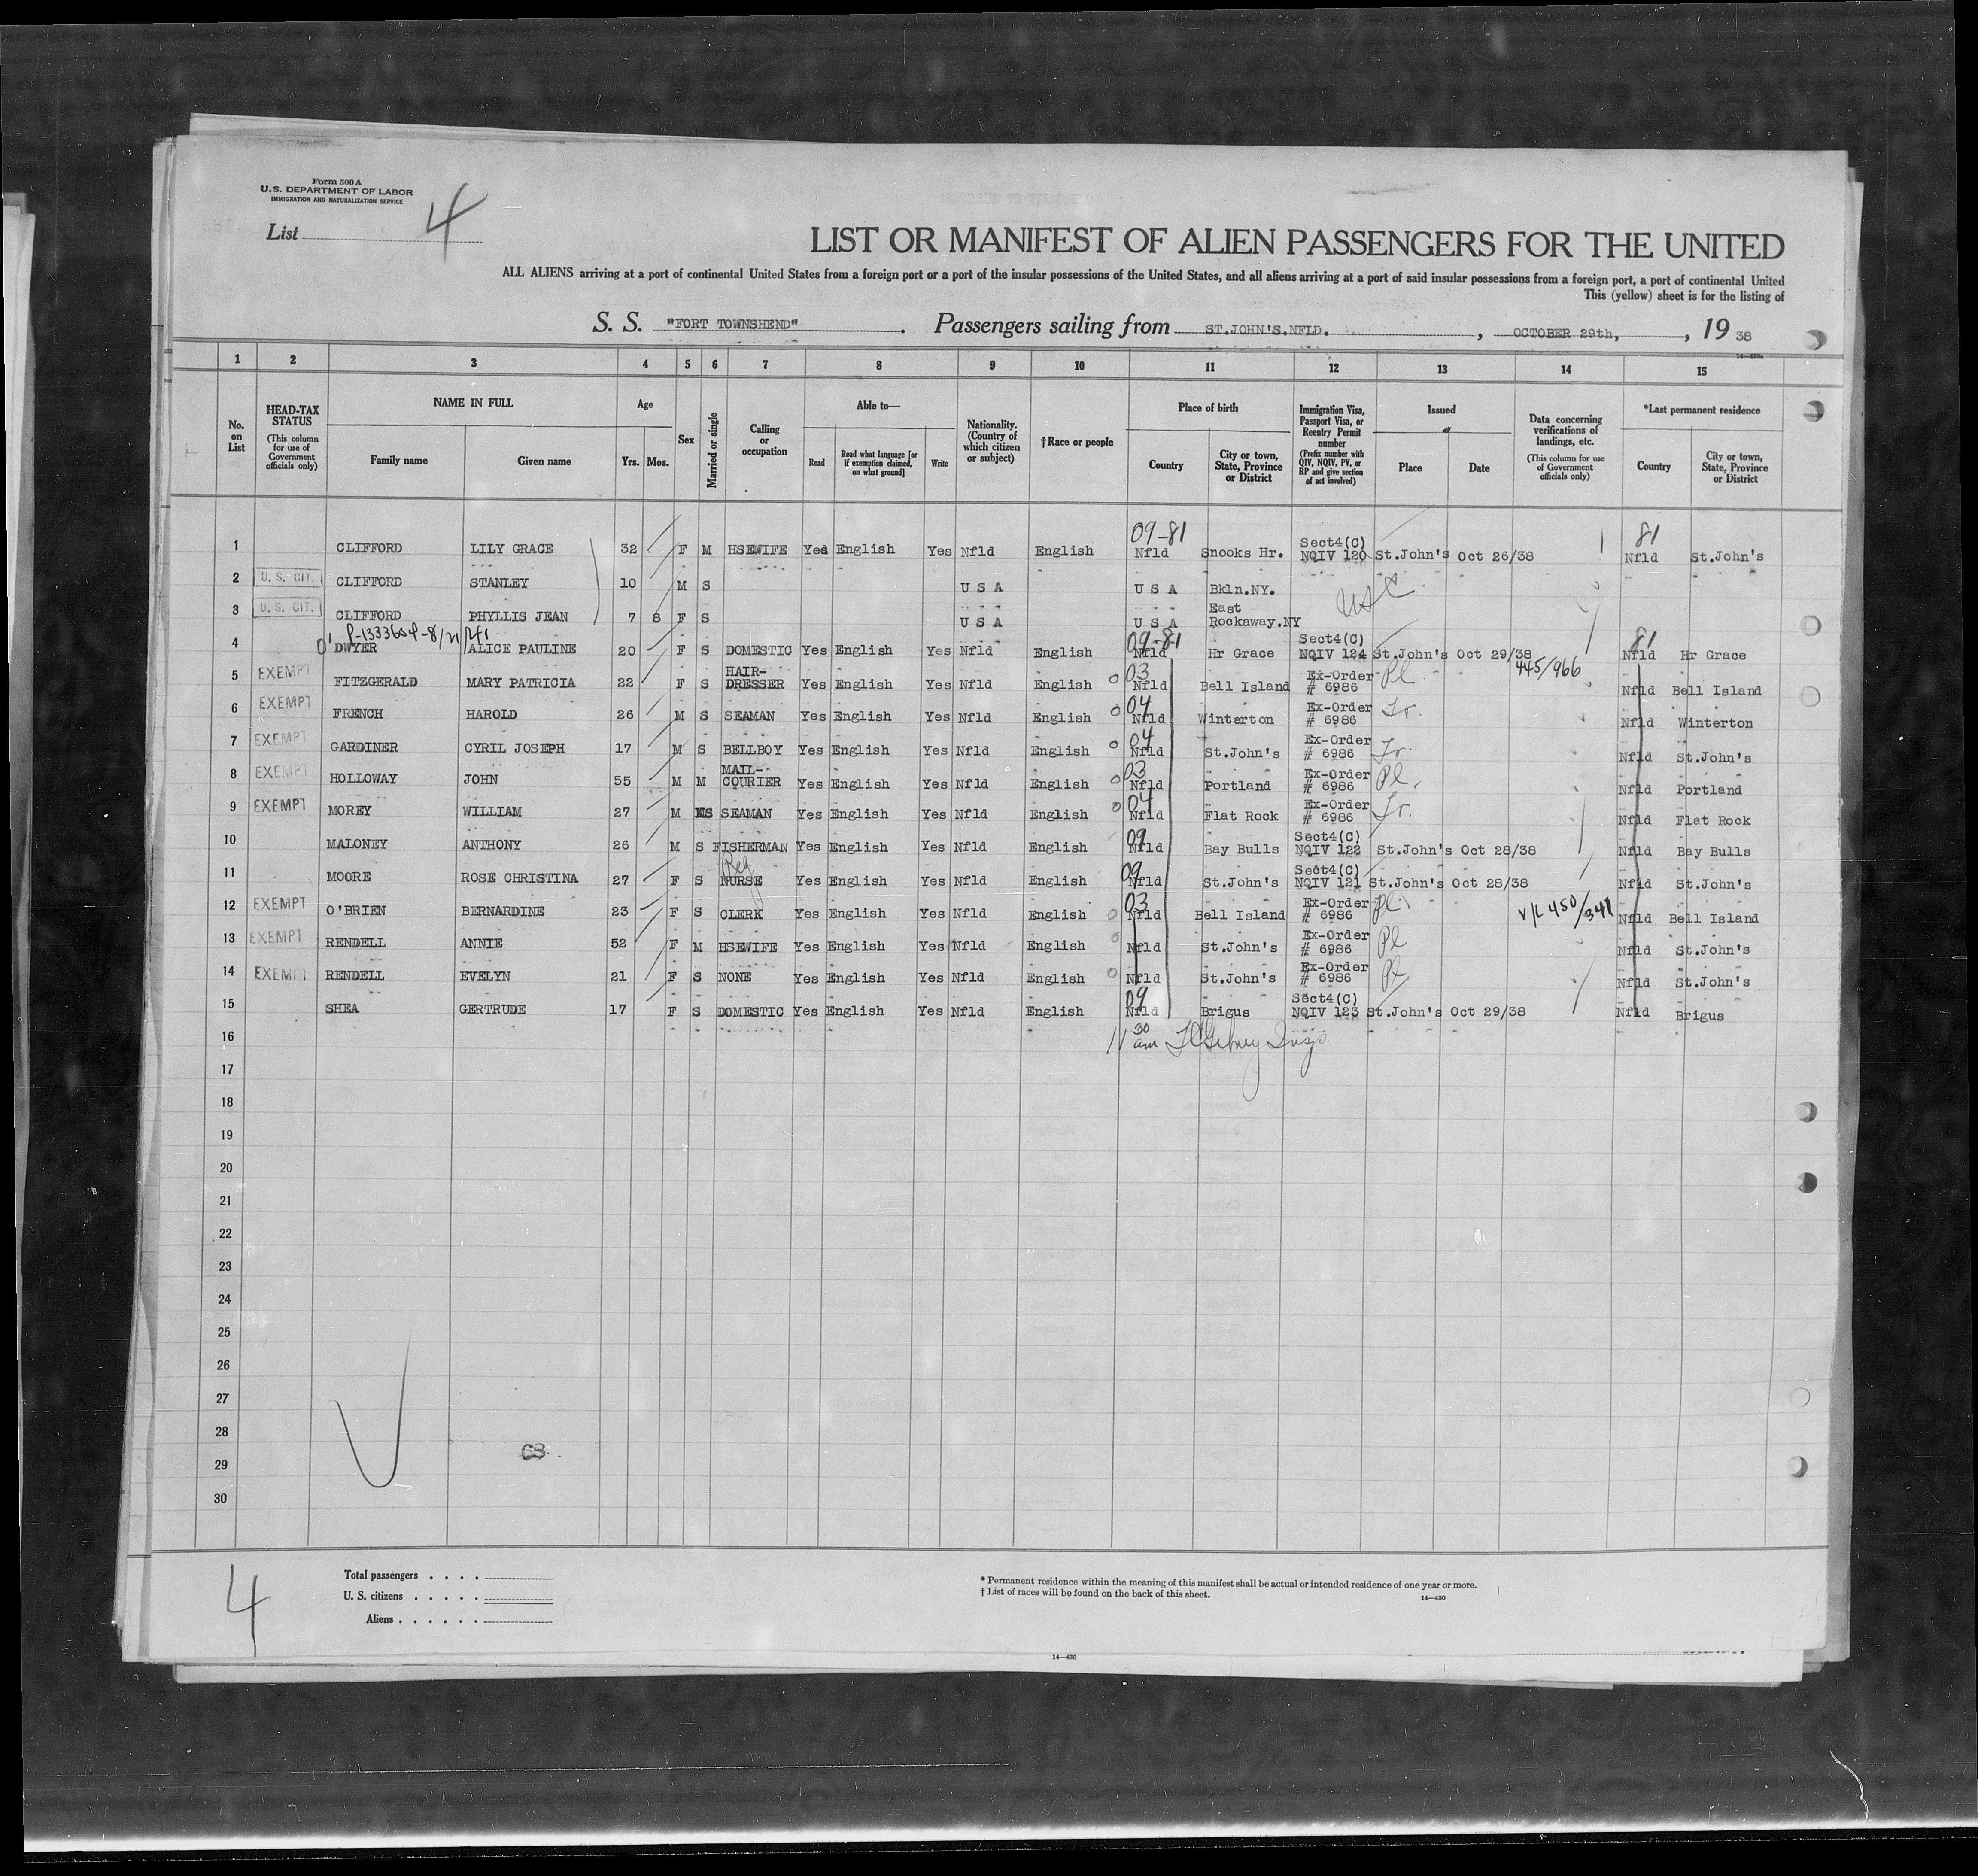 Form 500 A
U.S. DEPARTMENT OF LABOR
IMMIGRATION AND NATURALIZATION SERVICE
List 4
LIST OR MANIFEST OF ALIEN PASSENGERS FOR THE UNITED
ALL ALIENS arriving at a port of continental United States from a foreign port or a port of the insular possessions of the United States, and all aliens arriving at a port of said insular possessions from a foreign port, a port of continental United
This (yellow) sheet is for the listing of
S. S. "FORT TOWNSHEND". Passengers sailing from ST.JOHN'S.NFLD., OCTOBER 29th,, 19 38
14—430a
1 2 3 4 5 6 7 8 9 10 11 12 13 14 15
No. on List
HEAD-TAX STATUS (This column for use of Government officials only)
NAME IN FULL Family name Given name
Age Yrs. Mos.
Sex
Married or single
Calling or occupation
Able to— Read Read what language [or if exemption claimed, on what ground] Write
Nationality. (Country of which citizen or subject)
†Race or people
Place of birth Country City or town, State, Province or District
Immigration Visa, Passport Visa, or Reentry Permit number (Prefix number with QIV, NQIV, PV, or RP and give section of act involved)
Issued Place Date
Data concerning verifications of landings, etc. (This column for use of Government officials only)
*Last permanent residence Country City or town, State, Province or District
09-81 81
1 CLIFFORD LILY GRACE 32 F M HSEWIFE Yed English Yes Nfld English Nfld Snooks Hr. Sect4(C) NQIV 120 St.John's Oct 26/38 Nfld St.John's
2 U. S. CIT. CLIFFORD STANLEY 10 M S U S A U S A Bkln.NY. USC
3 U. S. CIT. CLIFFORD PHYLLIS JEAN 7 8 F S U S A U S A East Rockaway.NY
09-81 81
4 DWYER ALICE PAULINE 20 F S DOMESTIC Yes English Yes Nfld English Nfld Hr Grace Sect4(C) NQIV 124 St.John's Oct 29/38 Nfld Hr Grace
5 EXEMPT FITZGERALD MARY PATRICIA 22 F S HAIR-DRESSER Yes English Yes Nfld English 03 Nfld Bell Island Ex-Order # 6986 Pl 445/966 Nfld Bell Island
6 EXEMPT FRENCH HAROLD 26 M S SEAMAN Yes English Yes Nfld English 04 Nfld Winterton Ex-Order # 6986 Tr. Nfld Winterton
7 EXEMPT GARDINER CYRIL JOSEPH 17 M S BELLBOY Yes English Yes Nfld English 04 Nfld St.John's Ex-Order # 6986 Tr. Nfld St.John's
8 EXEMPT HOLLOWAY JOHN 55 M M MAIL-COURIER Yes English Yes Nfld English 03 Nfld Portland Ex-Order # 6986 Pl. Nfld Portland
9 EXEMPT MOREY WILLIAM 27 M S SEAMAN Yes English Yes Nfld English 04 Nfld Flat Rock Ex-Order # 6986 Tr. Nfld Flat Rock
10 MALONEY ANTHONY 26 M S FISHERMAN Yes English Yes Nfld English 09 Nfld Bay Bulls Sect4(C) NQIV 122 St.John's Oct 28/38 Nfld Bay Bulls
11 MOORE ROSE CHRISTINA 27 F S Reg NURSE Yes English Yes Nfld English 09 Nfld St.John's Sect4(C) NQIV 121 St.John's Oct 28/38 Nfld St.John's
12 EXEMPT O'BRIEN BERNARDINE 23 F S CLERK Yes English Yes Nfld English 03 Nfld Bell Island Ex-Order # 6986 Pl V/L 450/341 Nfld Bell Island
13 EXEMPT RENDELL ANNIE 52 F M HSEWIFE Yes English Yes Nfld English Nfld St.John's Ex-Order # 6986 Pl Nfld St.John's
14 EXEMPT RENDELL EVELYN 21 F S NONE Yes English Yes Nfld English Nfld St.John's Ex-Order # 6986 Pl Nfld St.John's
15 SHEA GERTRUDE 17 F S DOMESTIC Yes English Yes Nfld English 09 Nfld Brigus Sect4(C) NQIV 123 St.John's Oct 29/38 Nfld Brigus
16 11 30 am
17
18
19
20
21
22
23
24
25
26
27
28
29
30
4
Total passengers
U. S. citizens
Aliens
* Permanent residence within the meaning of this manifest shall be actual or intended residence of one year or more.
† List of races will be found on the back of this sheet.
14—430
14—430